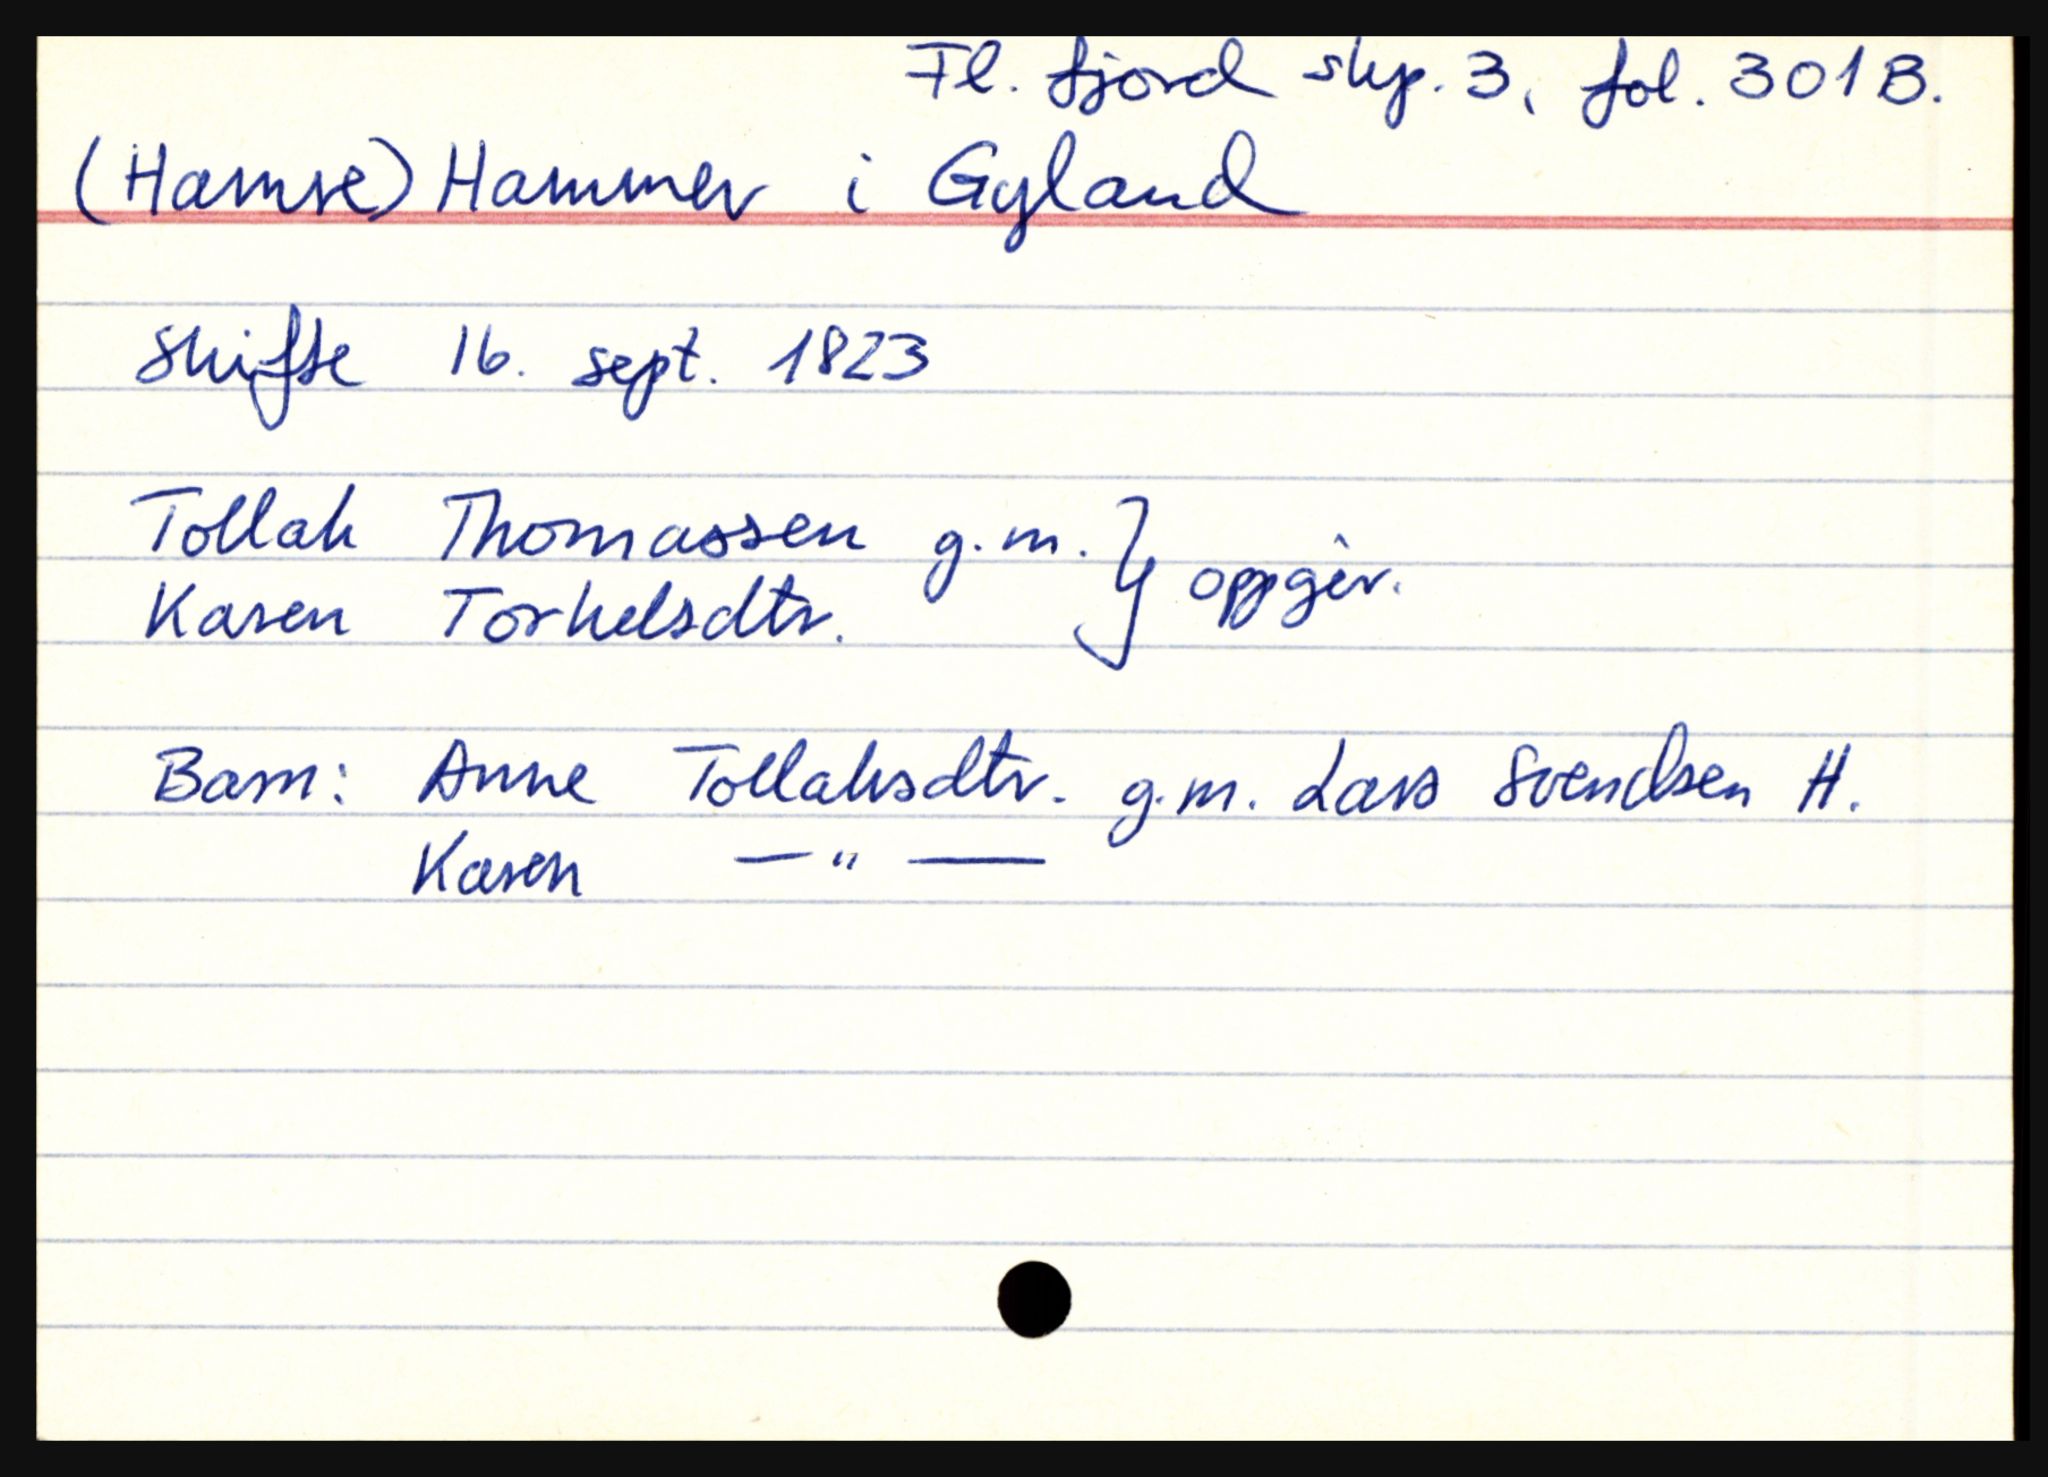 Fl. fjord skp. 3, fol. 301 B.
(Hamre) Hammer i Gyland
Skifte 16. sept. 1823
Tollak Thomassen g.m. } oppgir.
Karen Torkelsdtr.
Barn: Anne Tollaksdtr. g.m. Lars Svendsen H.
Karen — " —